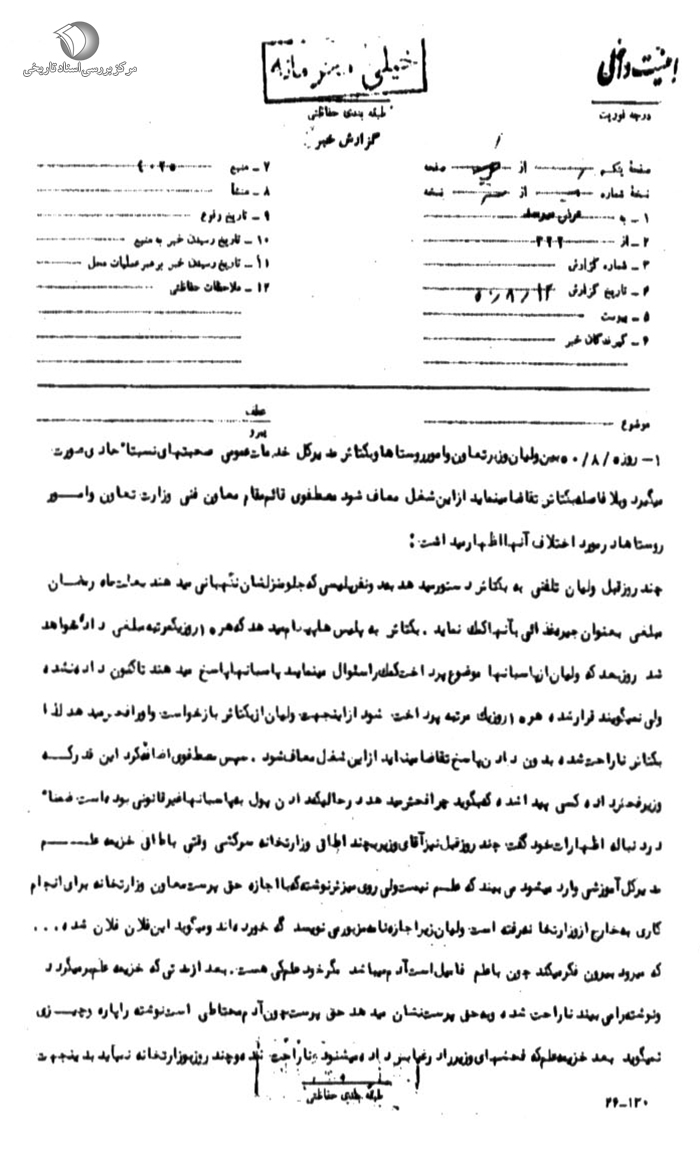 مرکز بررسی اسناد تاریخی
خیلی محرمانه
امنیت داخلی
درجه فوریت
طبقه بندی حفاظتی
گزارش خبر
صفحه یکم از صفحه
نسخه شماره از نسخه
۱ ـ به
۲ ـ از ۳۲۲
۳ ـ شماره گزارش
۴ ـ تاریخ گزارش ۵۰/۸/۱۴
۵ ـ پیوست
۶ ـ گیرندگان خبر
۷ ـ منبع
۸ ـ منشأ
۹ ـ تاریخ وقوع
۱۰ ـ تاریخ رسیدن خبر به منبع
۱۱ ـ تاریخ رسیدن خبر به رهبر عملیات محل
۱۲ ـ ملاحظات حفاظتی
موضوع
عطف
پیرو
۱ـ روز ۵۰/۸/۵ بین ولیان وزیر تعاون و امور روستاها و بکتاش مدیرکل خدمات عمومی صحبتهای نسبتاً حادی صورت
میگیرد و بلافاصله بکتاش تقاضا مینماید از این شغل معاف شود مصطفوی قائم مقام معاون فنی وزارت تعاون و امور
روستاها در مورد اختلاف آنها اظهار میداشت :
چند روز قبل ولیان تلفنی به بکتاش دستور میدهد به دو نفر پلیسی که جلو منزلشان نگهبانی میدهند بعلت ماه رمضان
مبلغی بعنوان جیره غذائی بآنها کمک نماید . بکتاش به پلیس ها پیام میدهد که هر ۱۰ روز یکمرتبه مبلغی داده خواهد
شد روز بعد که ولیان از پاسبانها موضوع پرداخت کمک را سئوال مینماید پاسبانها پاسخ میدهند تاکنون داده نشده
ولی نمیگویند قرار شده هر ۱۰ روز یک مرتبه پرداخت شود از اینجهت ولیان از بکتاش بازخواست و او را فحش میدهد لذا
بکتاش ناراحت شده بدون دادن پاسخ تقاضا مینماید از این شغل معاف شود . سپس مصطفوی اضافه کرد این قدر که
وزیر فحش داده کسی پیدا نشده که بگوید چرا فحش میدهد در حالیکه دادن پول به پاسبانها غیرقانونی بوده است ضمناً
در دنباله اظهارات خود گفت چند روز قبل نیز آقای وزیر به چند اطاق وزارتخانه سرکشی وقتی باطاق خزیمه علم
مدیرکل آموزشی وارد میشود می بیند که علم نیست ولی روی میزش نوشته که با اجازه حق پرست معاون وزارتخانه برای انجام
کاری به خارج از وزارتخانه رفته است ولیان زیر اجازه نامه مزبور می نویسد گه خورده اند و میگوید این فلان فلان شده ...
که میرود بیرون فکر میکند چون با علم فامیل است آدم میباشد مگر خود علم کی هست . بعد از مدتی که خزیمه علم برمیگردد
و نوشته را می بیند ناراحت شده و به حق پرست نشان میدهد حق پرست چون آدم محتاطی است نوشته را پاره و چیزی
نمیگوید بعد خزیمه علم که فحشهای وزیر را در غیابش داده میشنود ناراحت شده و چند روز بوزارتخانه نمیآید بدینجهت
طبقه بندی حفاظتی
۲۶-۱۳۰